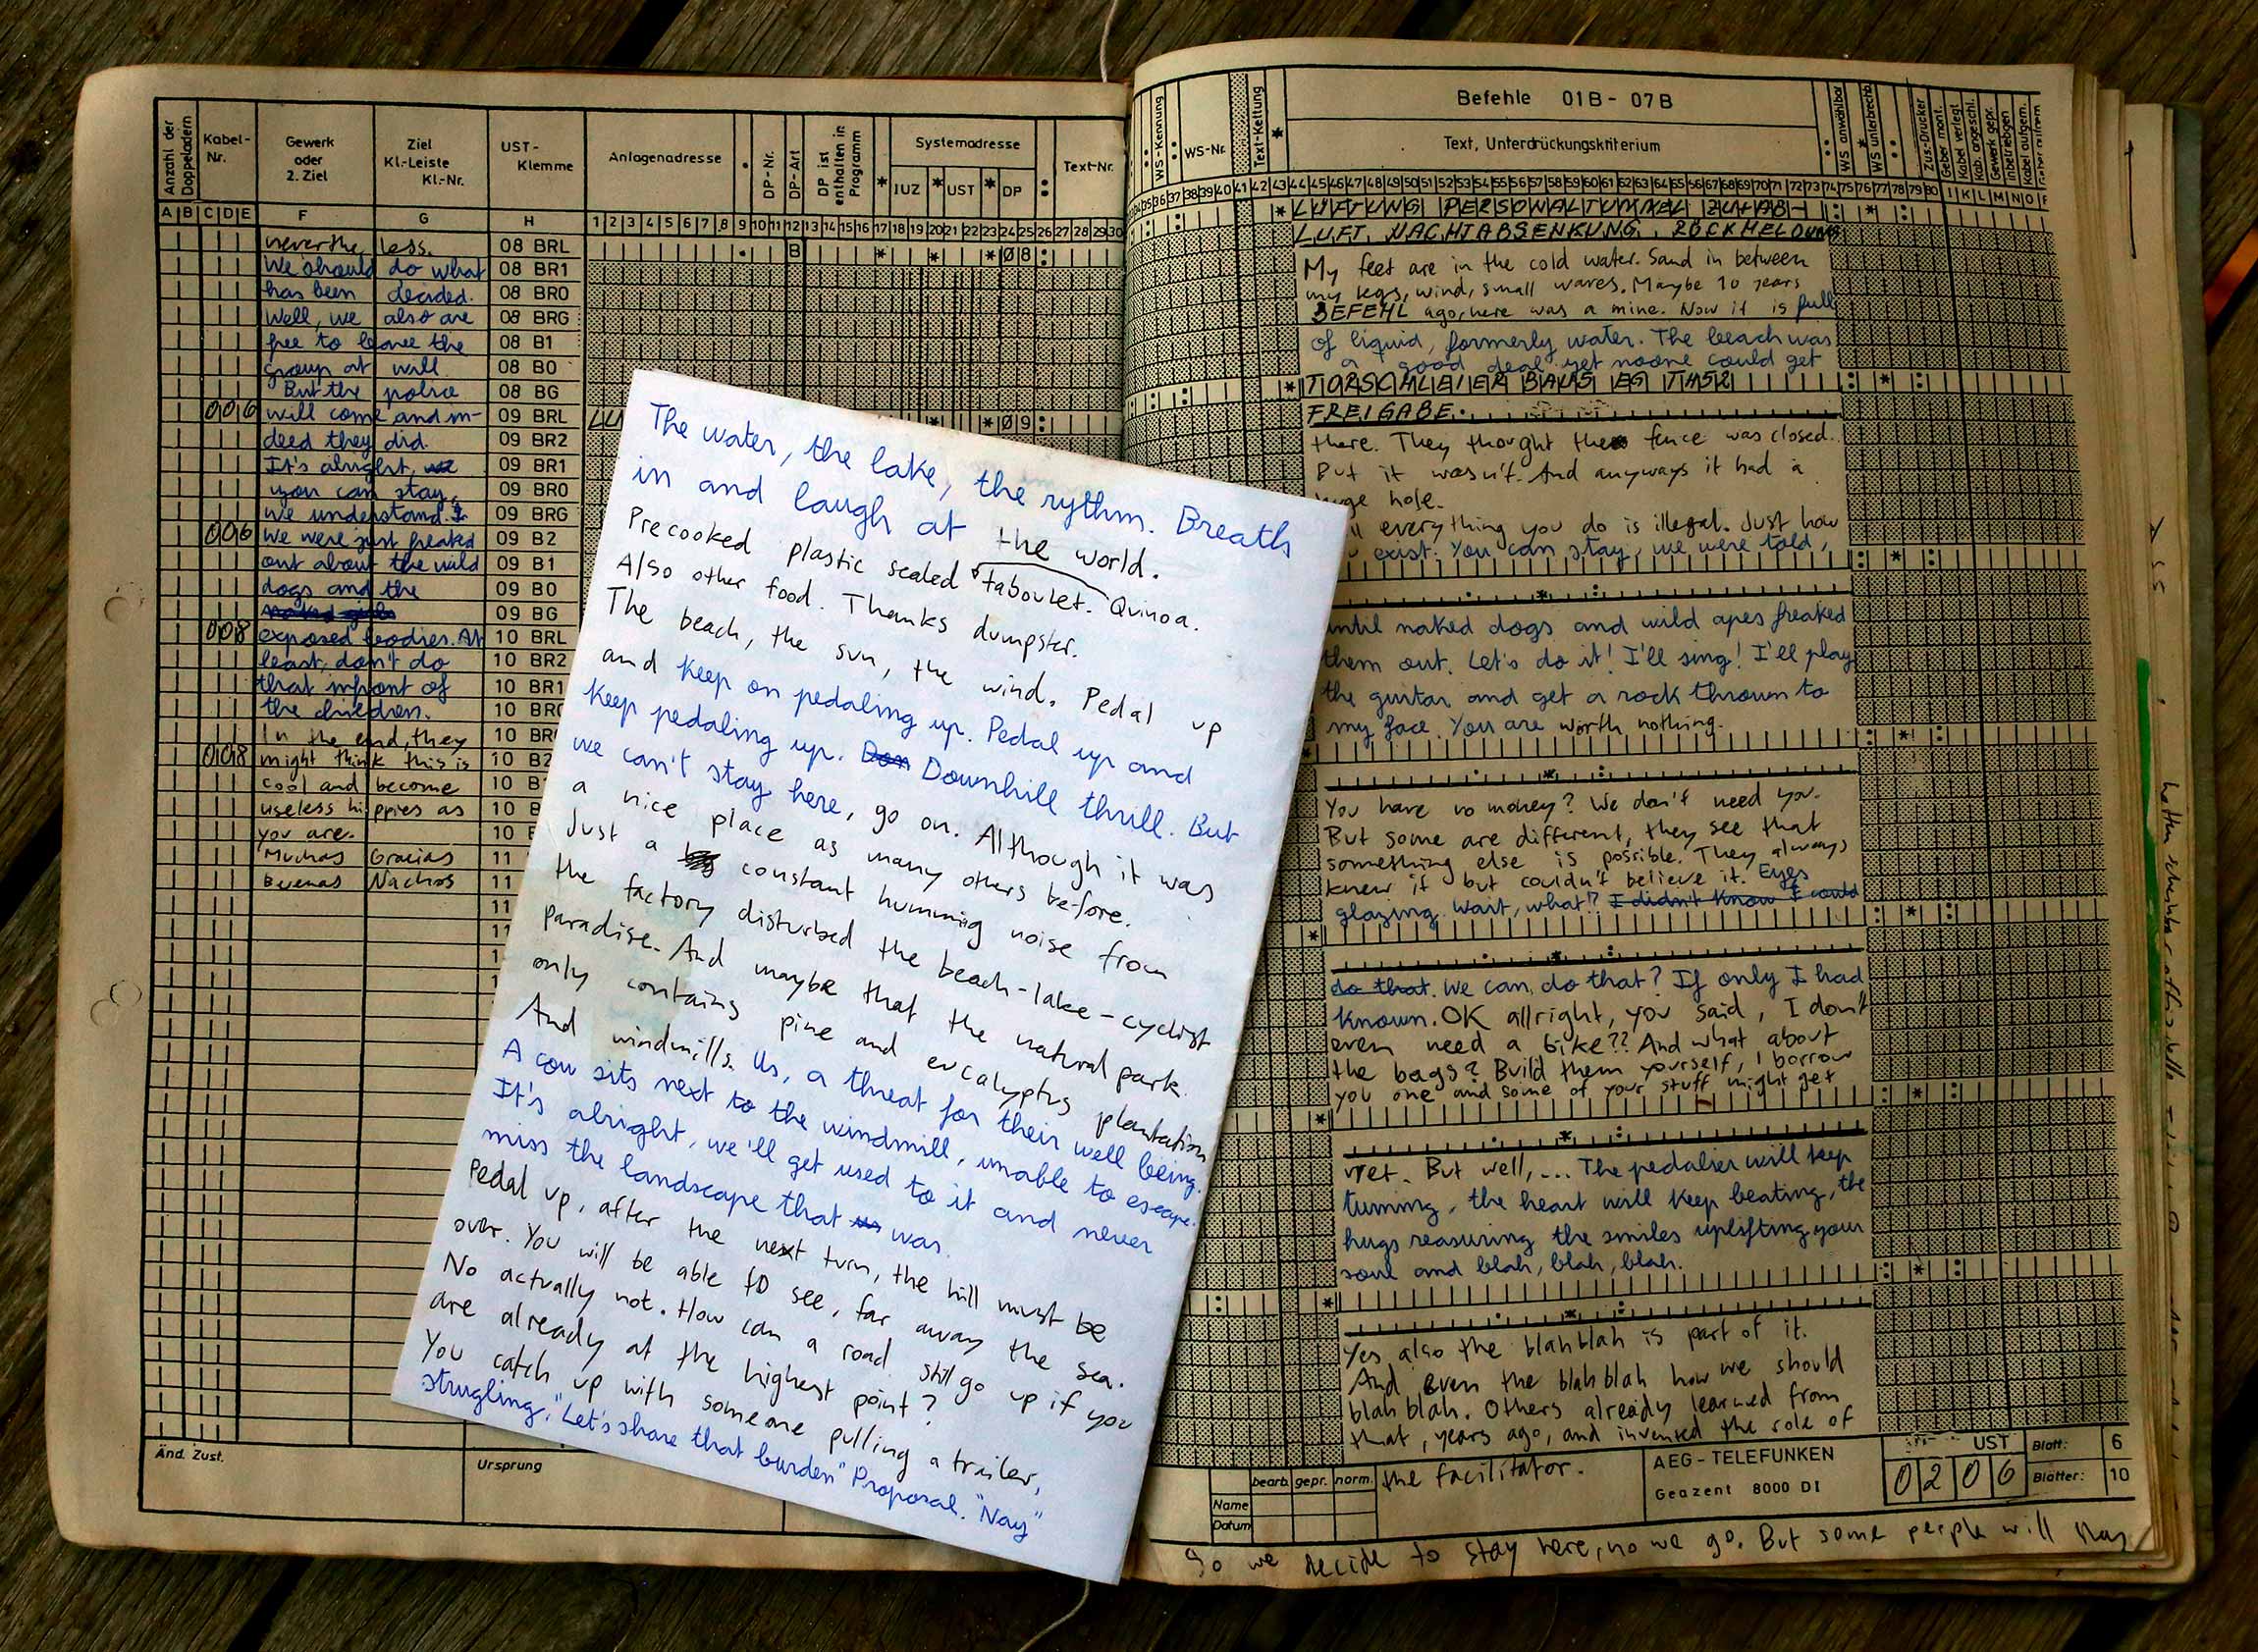 Anzahl der Doppeladern
Kabel-Nr.
Gewerk oder 2. Ziel
Ziel Kl.-Leiste Kl.-Nr.
UST-Klemme
Anlagenadresse
DP-Nr.
DP-Art
DP ist enthalten in Programm
Systemadresse
IUZ * UST * DP
Text-Nr.
A B C D E F G H 1 2 3 4 5 6 7 8 9 10 11 12 13 14 15 16 17 18 19 20 21 22 23 24 25 26 27 28 29 30
never the less. 08 BRL B * * * 08 :
We should do what 08 BR1
has been decided. 08 BR0
Well, we also are 08 BRG
free to leave the 08 B1
group at will 08 B0
But the police 08 BG
006 will come and in- 09 BRL * * 09 :
deed they did. 09 BR2
It's alright, we 09 BR1
you can stay, 09 BR0
we understand. I 09 BRG
006 We were just freaked 09 B2
out about the wild 09 B1
dogs and the 09 B0
naked girls 09 BG
008 exposed bodies. At 10 BRL
least, don't do 10 BR2
that infront of 10 BR1
the children. 10 BR
In the end, they 10 BR
008 might think this is 10 B2
cool and become 10 B
useless hippies as 10 B
you are. 10
Muchas Gracias 11
Buenas Nachos 11
11
Änd. Zust.
Ursprung
The water, the lake, the rythm. Breath
in and laugh at the world.
Precooked plastic sealed taboulet. Quinoa.
Also other food. Thanks dumpster.
The beach, the sun, the wind. Pedal up
and keep on pedaling up. Pedal up and
keep pedaling up. Don Downhill thrill. But
we can't stay here, go on. Although it was
a nice place as many others before.
Just a constant humming noise from
the factory disturbed the beach-lake-cyclist
paradise. And maybe that the natural park
only contains pine and eucalyptus plantation
And windmills. Us, a threat for their well being.
A cow sits next to the windmill, unable to escape.
It's alright, we'll get used to it and never
miss the landscape that was.
Pedal up, after the next turn, the hill must be
over. You will be able to see, far away the sea.
No actually not. How can a road still go up if you
are already at the highest point?
You catch up with someone pulling a trailer,
strugling. "Let's share that burden" Proposal. "Nay"
WS-Kennung
WS-Nr.
Text-Kettung
Befehle 01B - 07B
Text, Unterdrückungskriterium
WS anwählbar
WS unterbrechb.
Zus.-Drucker
Geber mont.
Kabel verlegt
Kab. angeschl.
Gewerk gepr.
Inbetriebgen.
Kabel aufgem.
35 36 37 38 39 40 41 42 43 44 45 46 47 48 49 50 51 52 53 54 55 56 57 58 59 60 61 62 63 64 65 66 67 68 69 70 71 72 73 74 75 76 77 78 79 80 I K L M N O
* LÜFTUNG PERSONALTUNNEL ZU+AB-
LUFT, NACHTABSENKUNG, RÜCKMELDUNG
My feet are in the cold water. Sand in between
my legs, wind, small waves. Maybe 10 years
BEFEHL ago, here was a mine. Now it is full
of liquid, formerly water. The beach was
a good deal yet noone could get
* TORSCHLEIER BAUS EG TH52
FREIGABE.
there. They thought the fence was closed.
But it wasn't. And anyways it had a
huge hole.
everything you do is illegal. Just how
exist. You can stay, we were told,
until naked dogs and wild apes freaked
them out. Let's do it! I'll sing! I'll play
the guitar and get a rock thrown to
my face. You are worth nothing.
You have no money? We don't need you.
But some are different, they see that
something else is possible. They always
knew it but couldn't believe it. Eyes
glazing. Wait, what!? I didn't know I could
do that. We can do that? If only I had
known. OK allright, you said, I don't
even need a bike?? And what about
the bags? Build them yourself, I borrow
you one and some of your stuff might get
wet. But well, ... The pedalier will keep
turning, the heart will keep beating, the
hugs reasuring the smiles uplifting your
soul and blah, blah, blah.
Yes also the blahblah is part of it.
And even the blahblah how we should
blahblah. Others already learned from
that, years ago, and invented the role of
the facilitator.
bearb. gepr. norm.
Name
Datum
AEG-TELEFUNKEN
Geazent 8000 DI
UST
0206
Blatt: 6
Blätter: 10
So we decide to stay here, no we go. But some people will stay